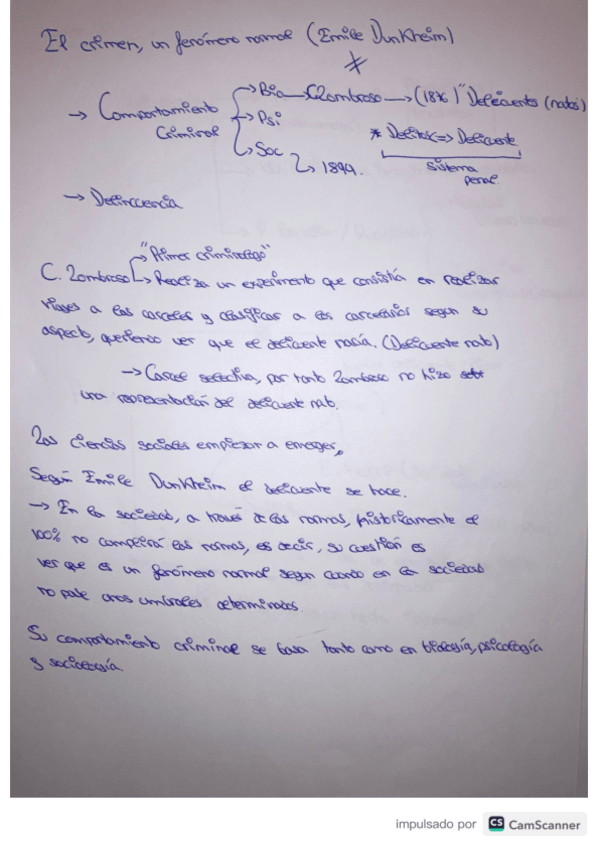 El crimen, un fenómeno normal (Emile Dunkheim)
*
→ Comportamiento Criminal
→ Bio → C. Lombroso → (1876) "Delicuentes (natos)
→ Psi
* Delitos => Delicuente
→ Soc
→ 1894.
sistema penal.
→ Delincuencia
"Primer criminologo"
C. Lombroso → Realiza un experimento que consistía en realizar
viajes a las carceles y clasificar a los carcelarios segun su
aspecto, queriendo ver que el delicuente nacía. (Delicuente nato)
→ Carcel selectiva, por tanto Lombroso no hizo
una representación del delicuente nato.
Las ciencias sociales empiezan a emerger,
Según Emile Dunkheim el delicuente se hace.
→ En la sociedad, a través de las normas, historicamente el
100% no cumplirá las normas, es decir, su cuestión es
ver que es un fenómeno normal segun cuando en la sociedad
no pase unos umbrales determinados.
Su comportamiento criminal se basa tanto como en biología, psicología
y sociología.
impulsado por CS CamScanner